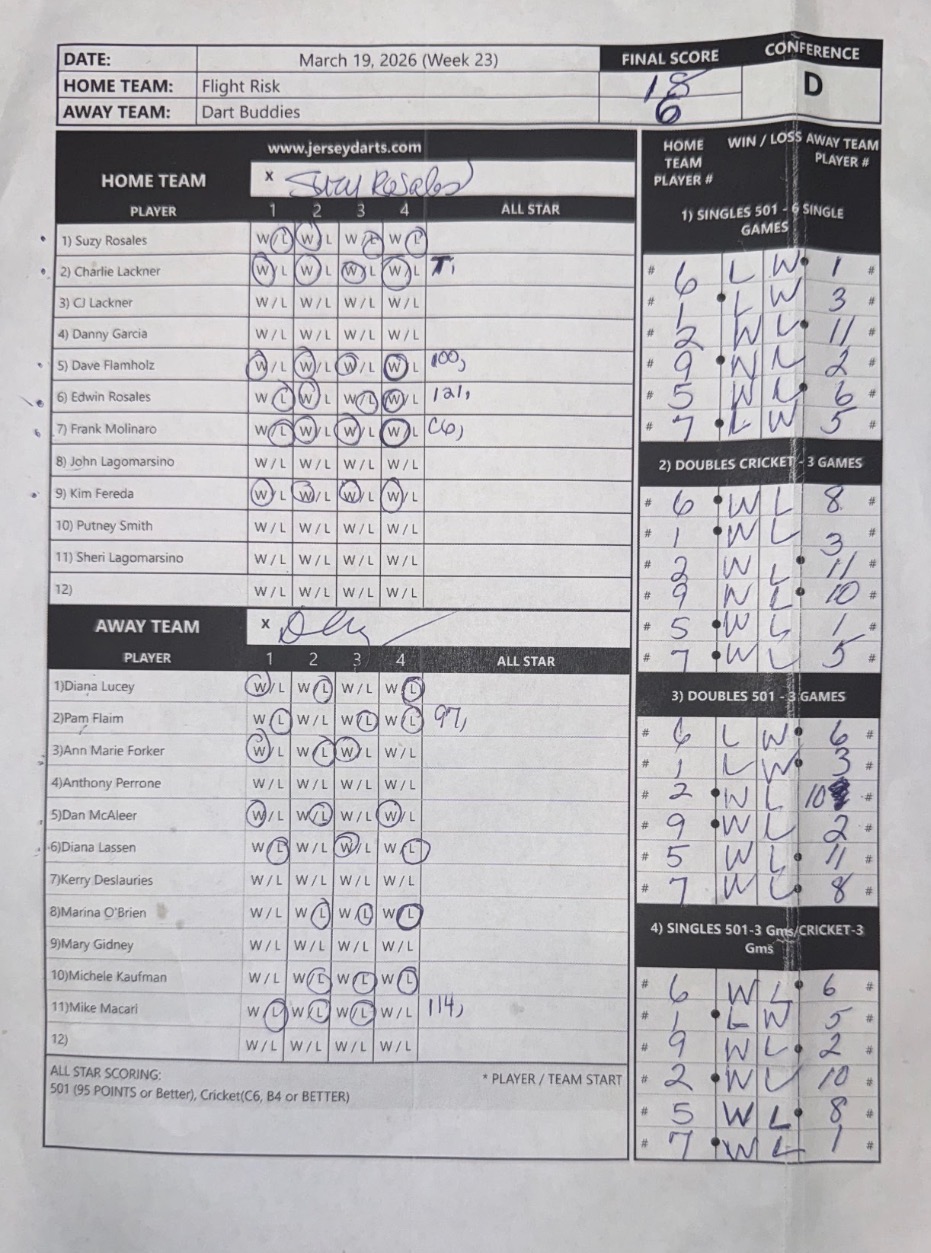 DATE: March 19, 2026 (Week 23) FINAL SCORE CONFERENCE
HOME TEAM: Flight Risk 18 D
AWAY TEAM: Dart Buddies 6
www.jerseydarts.com
HOME TEAM x Suzy Rosales
PLAYER 1 2 3 4 ALL STAR
1) Suzy Rosales W/L W/L W/L W/L
2) Charlie Lackner W/L W/L W/L W/L T,
3) CJ Lackner W/L W/L W/L W/L
4) Danny Garcia W/L W/L W/L W/L
5) Dave Flamholz W/L W/L W/L W/L 100,
6) Edwin Rosales W/L W/L W/L W/L 121,
7) Frank Molinaro W/L W/L W/L W/L C6,
8) John Lagomarsino W/L W/L W/L W/L
9) Kim Fereda W/L W/L W/L W/L
10) Putney Smith W/L W/L W/L W/L
11) Sheri Lagomarsino W/L W/L W/L W/L
12) W/L W/L W/L W/L
AWAY TEAM x
PLAYER 1 2 3 4 ALL STAR
1)Diana Lucey W/L W/L W/L W/L
2)Pam Flaim W/L W/L W/L W/L 97,
3)Ann Marie Forker W/L W/L W/L W/L
4)Anthony Perrone W/L W/L W/L W/L
5)Dan McAleer W/L W/L W/L W/L
6)Diana Lassen W/L W/L W/L W/L
7)Kerry Deslauries W/L W/L W/L W/L
8)Marina O'Brien W/L W/L W/L W/L
9)Mary Gidney W/L W/L W/L W/L
10)Michele Kaufman W/L W/L W/L W/L
11)Mike Macari W/L W/L W/L W/L 114,
12) W/L W/L W/L W/L
ALL STAR SCORING: * PLAYER / TEAM START
501 (95 POINTS or Better), Cricket(C6, B4 or BETTER)
HOME TEAM PLAYER # WIN / LOSS AWAY TEAM PLAYER #
1) SINGLES 501 - 6 SINGLE GAMES
# 6 L W 1 #
# 1 L W 3 #
# 2 W L 11 #
# 9 W L 2 #
# 5 W L 6 #
# 7 L W 5 #
2) DOUBLES CRICKET - 3 GAMES
# 6 W L 8 #
# 1 W L 3 #
# 2 W L 11 #
# 9 W L 10 #
# 5 W L 1 #
# 7 W L 5 #
3) DOUBLES 501 - 3 GAMES
# 6 L W 6 #
# 1 L W 3 #
# 2 W L 10 #
# 9 W L 2 #
# 5 W L 11 #
# 7 W L 8 #
4) SINGLES 501-3 Gms/CRICKET-3 Gms
# 6 W L 6 #
# 1 L W 5 #
# 9 W L 2 #
# 2 W L 10 #
# 5 W L 8 #
# 7 W L 1 #